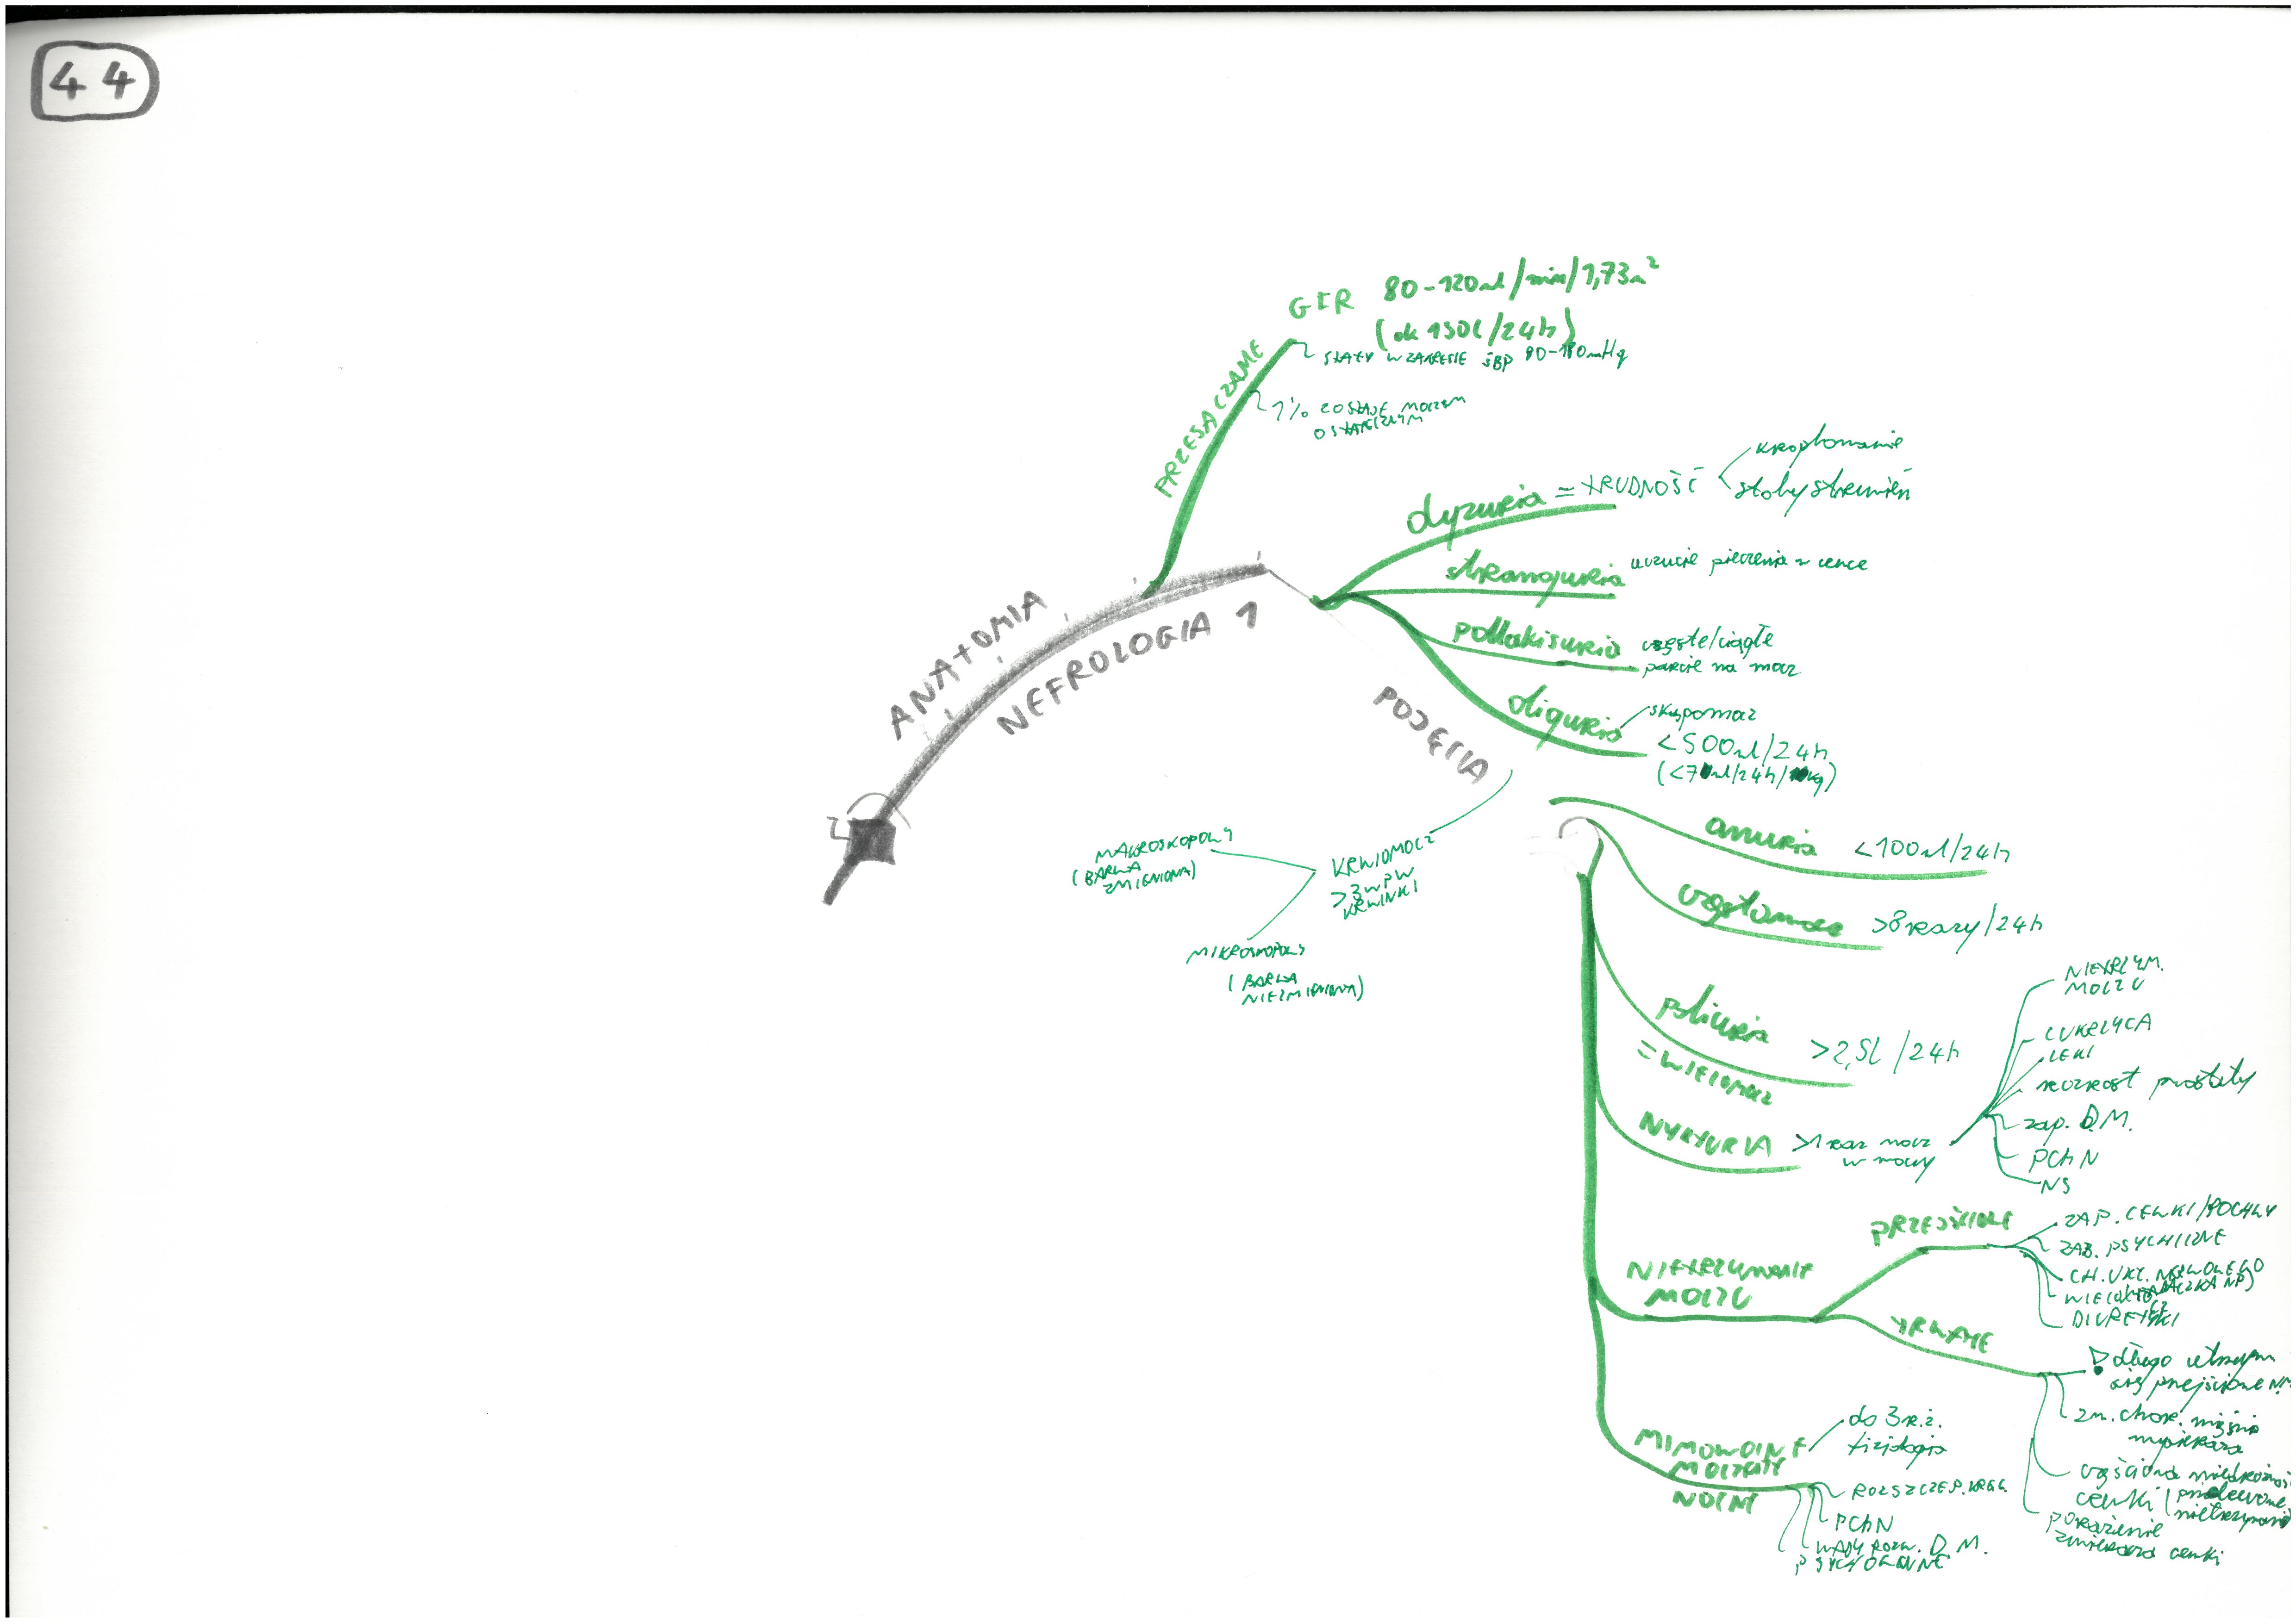 44
ANATOMIA
NEFROLOGIA 1
PRZESĄCZANIE
GFR 80-120ml/min/1,73m²
(ok 150l/24h)
STAŁY W ZAKRESIE ŚBP 80-180mmHg
1% ZOSTAJE MOCZEM
OSTATECZNYM
POJĘCIA
dyzuria = TRUDNOŚĆ
kroplomanie
słaby strumień
stranguria uczucie pieczenia w cewce
pollakisuria częste/ciągłe
parcie na mocz
oliguria skąpomocz
<500ml/24h
anuria <100ml/24h
częstomocz >8 razy/24h
poliuria >2,5l/24h
=WIELOMOCZ
NYKTURIA >1 raz mocz
w nocy
NIETRZYM.
MOCZU
CUKRZYCA
LEKI
rozrost prostaty
zap. D.M.
PChN
NS
NIETRZYMANIE
MOCZU
PRZEJŚCIOWE
ZAP. CEWKI/POCHWY
ZAB. PSYCHICZNE
CH. UKŁ. NERWOWEGO
DIURETYKI
TRWAŁE
długo utrzym
się przejściowe NM
zm. chor. mięśnia
wypieracza
częściowa niedrożność
cewki (
porażenie
zwieracza cewki
MIMOWOLNE
MOCZENIE
NOCNE
do 3 r.ż.
fizjologia
ROZSZCZEP. KRĘG.
PChN
WADY ROZW. D.M.
PSYCHOGENNE
KRWIOMOCZ
>3 WPW
KRWINKI
MAKROSKOPOWY
(BARWA
ZMIENIONA)
MIKROSKOPOWY
(BARWA
NIEZMIENIONA)